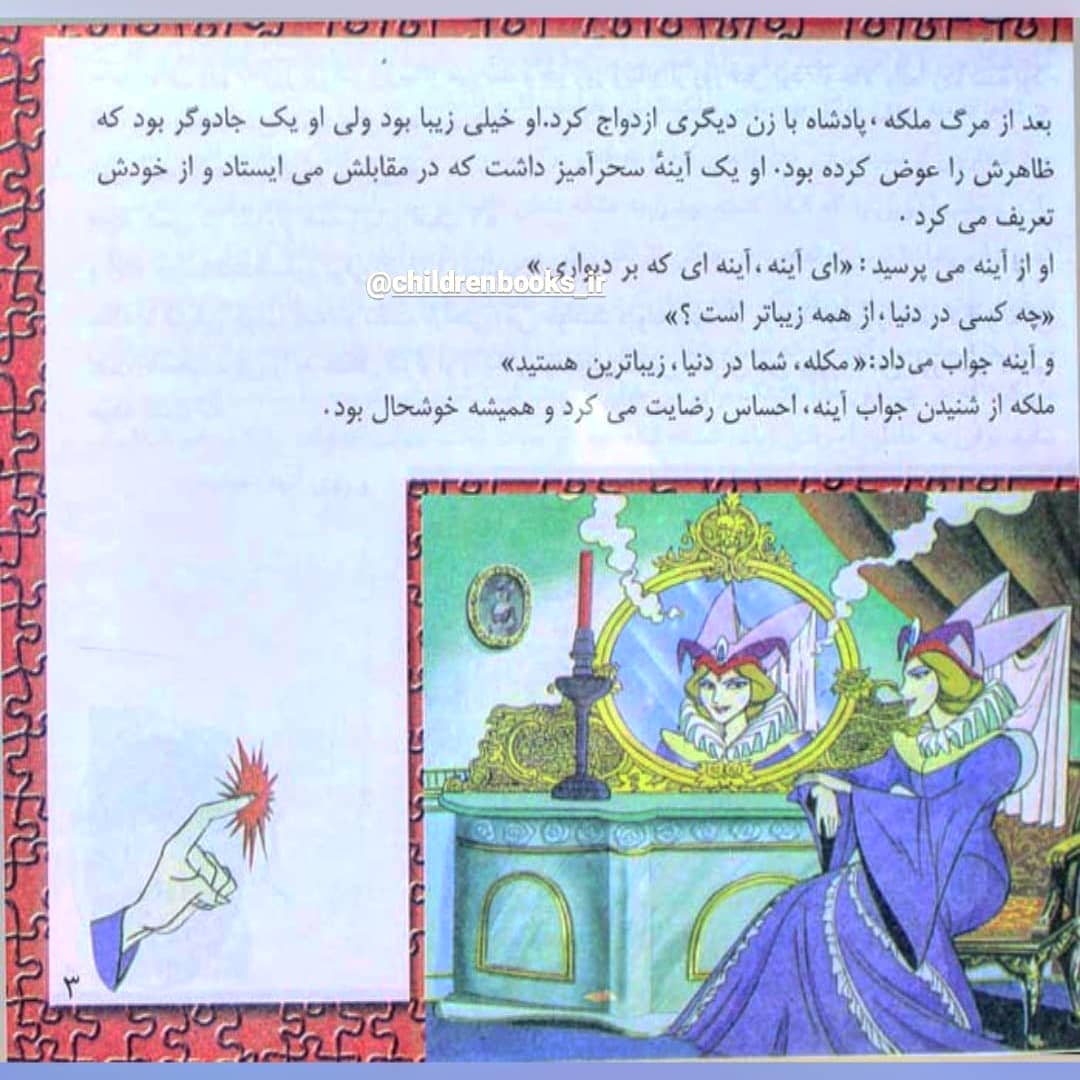 بعد از مرگ ملکه ،پادشاه با زن دیگری ازدواج کرد.او خیلی زیبا بود ولی او یک جادوگر بود که
ظاهرش را عوض کرده بود. او یک آینهٔ سحرآمیز داشت که در مقابلش می ایستاد و از خودش
تعریف می کرد .
او از آینه می پرسید : «ای آینه ،آینه ای که بر دیواری ،»
@childrenbooks_ir
«چه کسی در دنیا، از همه زیباتر است ؟»
و آینه جواب می‌داد:« مکله، شما در دنیا، زیباترین هستید»
ملکه از شنیدن جواب آینه، احساس رضایت می کرد و همیشه خوشحال بود.
۳